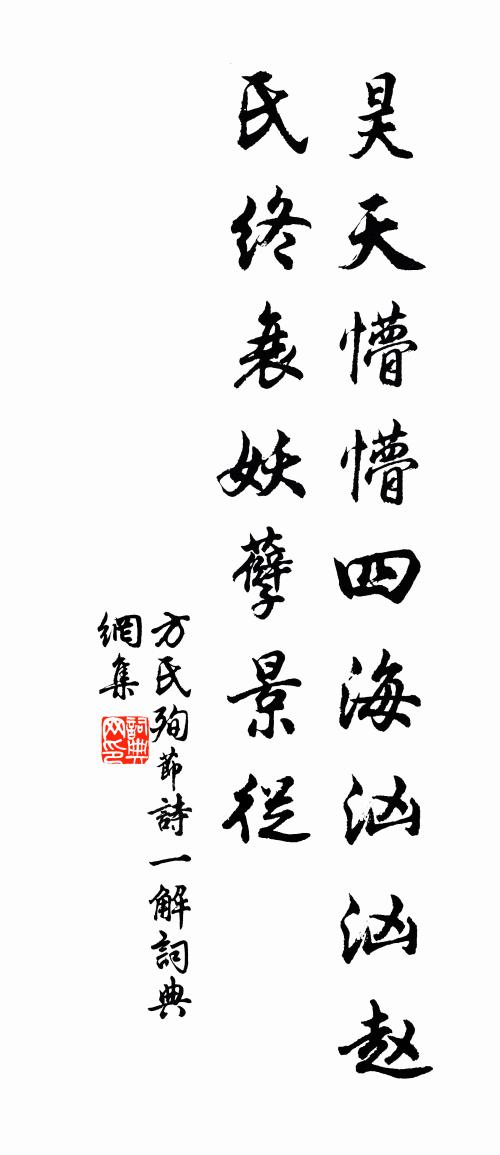 昊天懵懵四海汹汹赵
氏终衰妖孽景從
方氏殉節詩一解詞典
網集
詞典网印